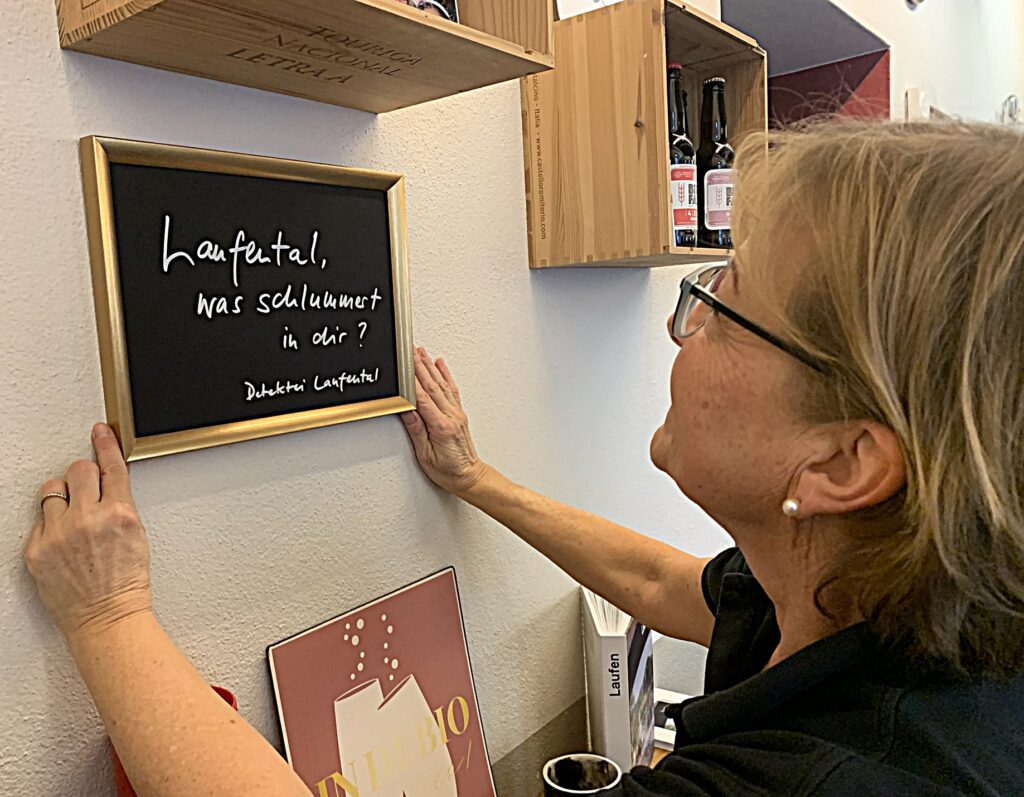 TOURIGA
NACIONAL
LETRA A
Laufental,
was schlummert
in dir?
Detektei Laufental
talcino - Italia - www.castelloromitorio.com
Laufen
BIO